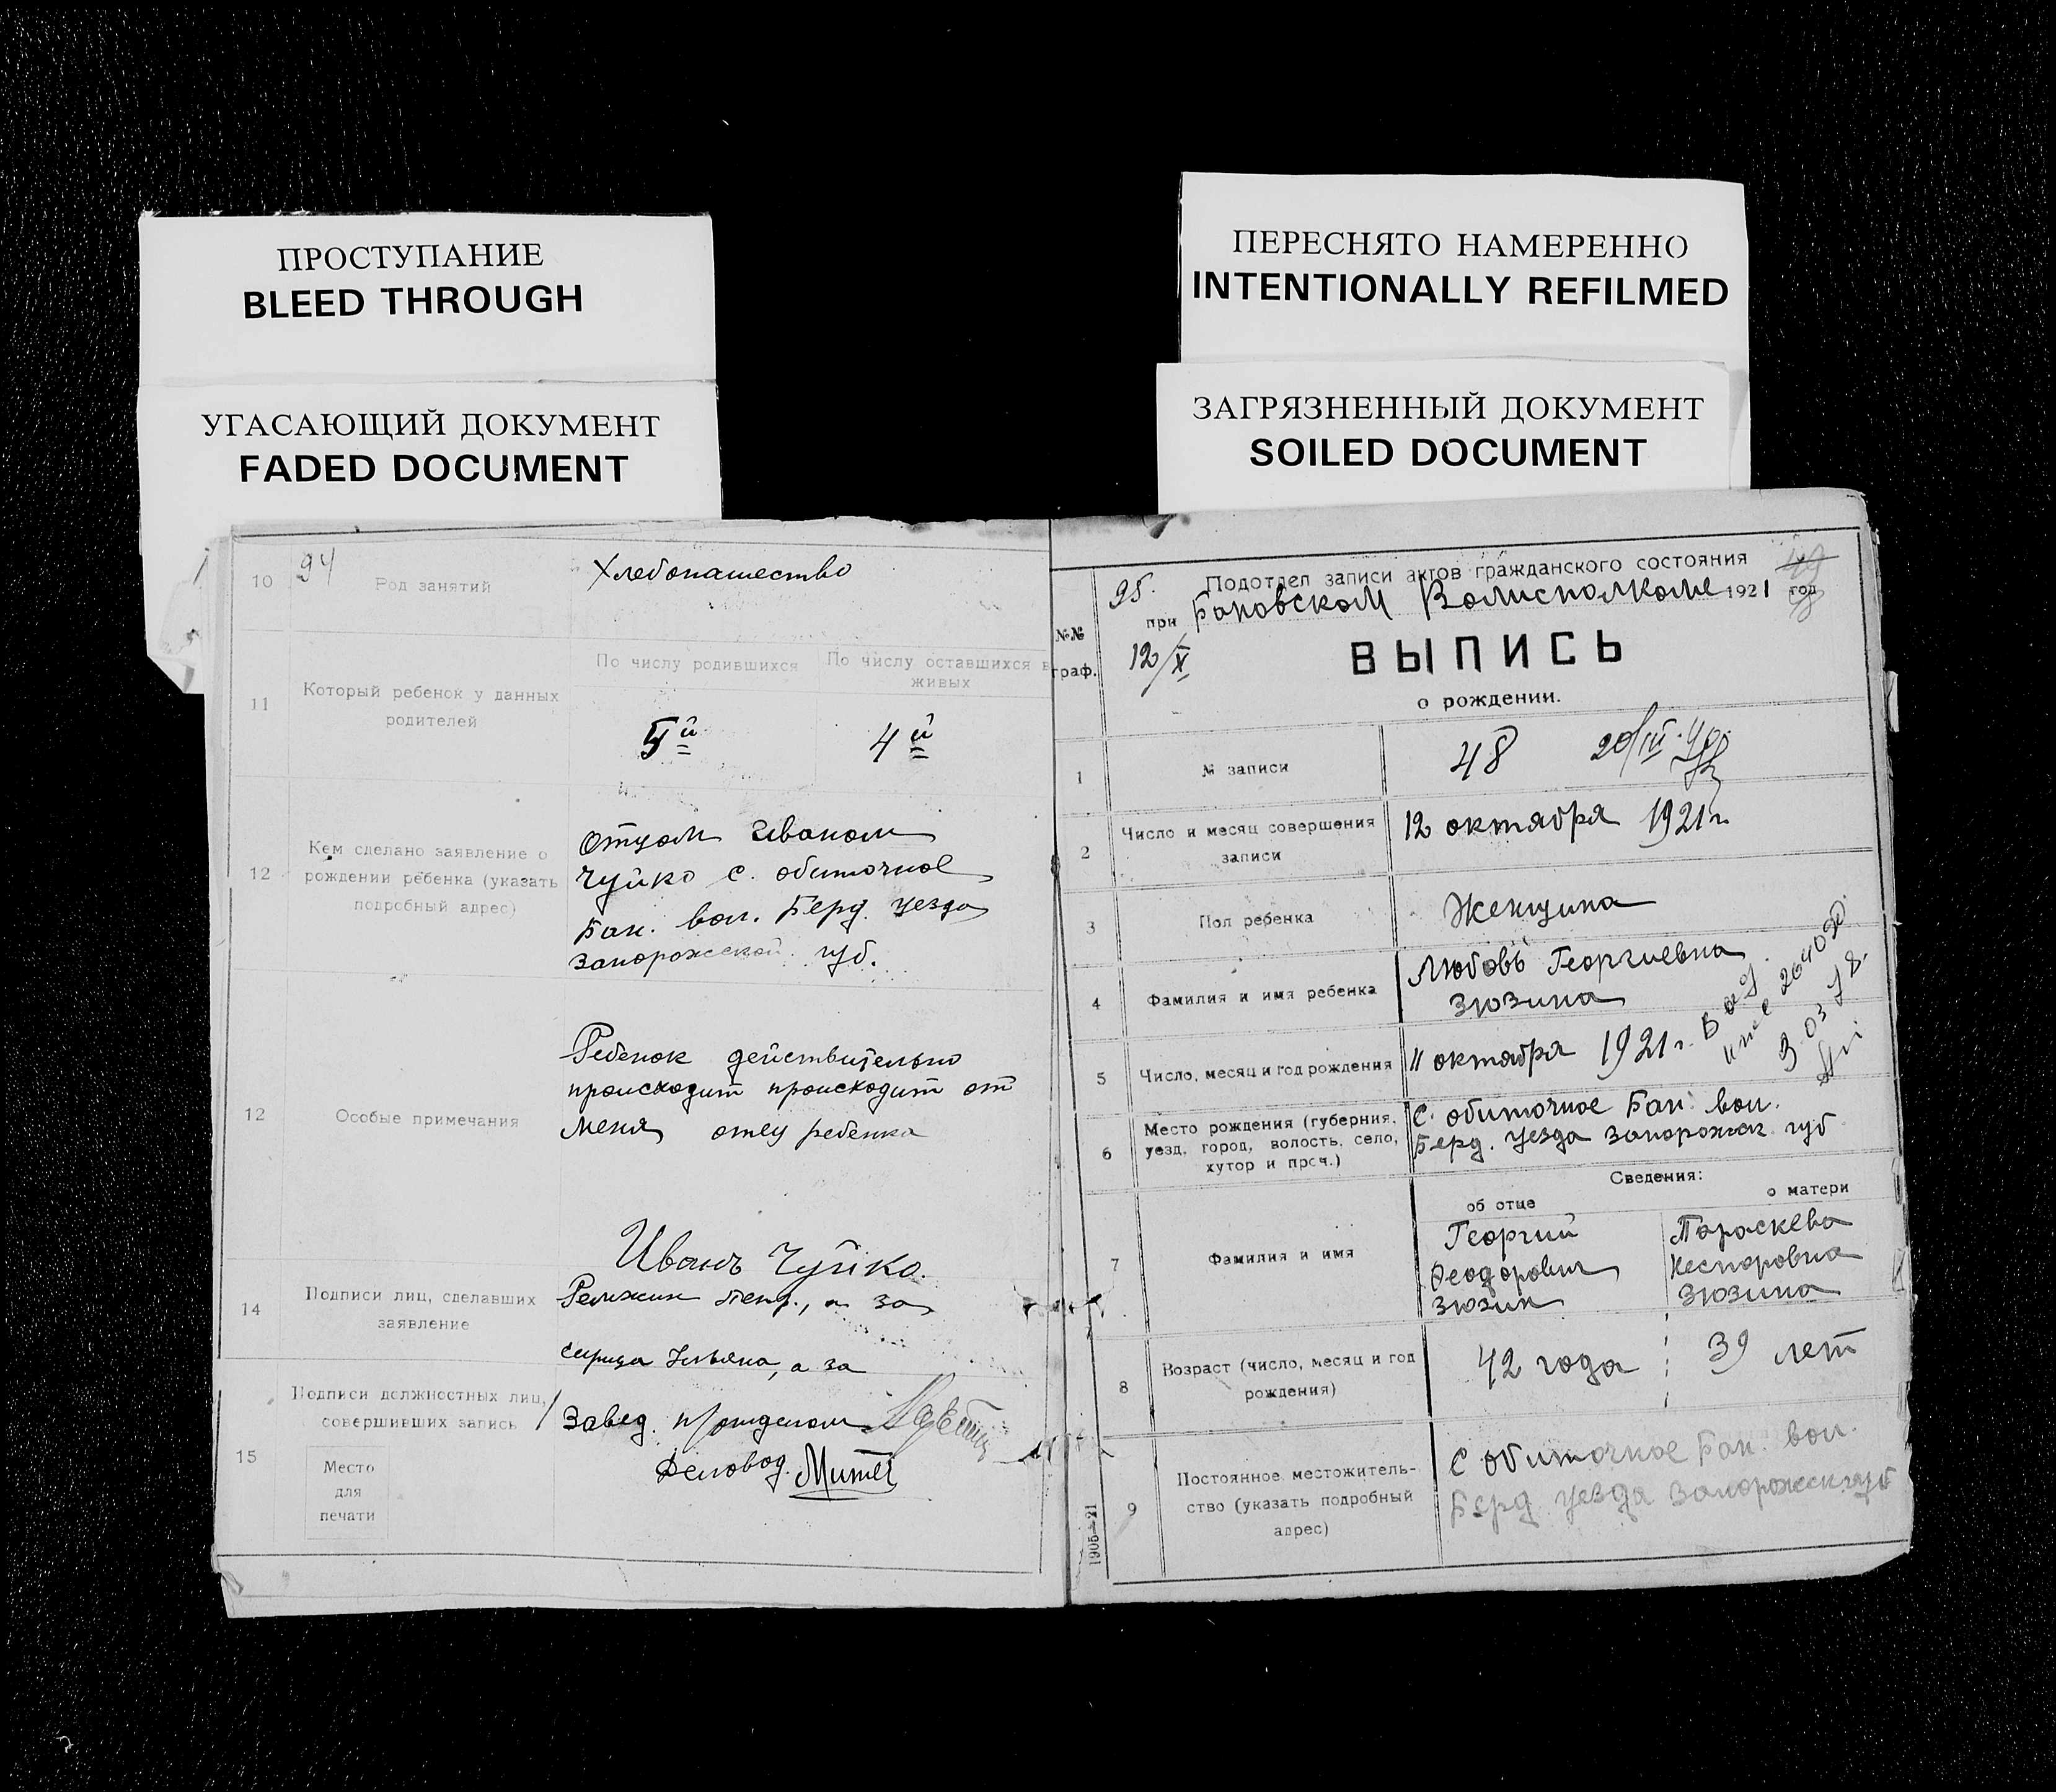 ПРОСТУПАНИЕ
BLEED THROUGH
УГАСАЮЩИЙ ДОКУМЕНТ
FADED DOCUMENT
ПЕРЕСНЯТО НАМЕРЕННО
INTENTIONALLY REFILMED
ЗАГРЯЗНЕННЫЙ ДОКУМЕНТ
SOILED DOCUMENT
94
10 Род занятий Хлебопашество
По числу родившихся По числу оставшихся в живых
11 Который ребенок у данных родителей 5й 4й
12 Кем сделано заявление о рождении ребенка (указать подробный адрес)
Отцом Иваном
Чуйко с. обиточное
Бан. вол. Берд. уезда
Запорожской губ.
12 Особые примечания
Ребенок действительно
происходит происходит от
меня отец ребенка
Иванъ Чуйко.
14 Подписи лиц, сделавших заявление
а за
а за
15 Подписи должностных лиц, совершивших запись
Завед. п/отделом
Деловод.
Место
для
печати
95.
Подотдел записи актов гражданского состояния
при Бановском Волисполкоме 1921 год
№№
граф.
12/X
ВЫПИСЬ
о рождении.
1 № записи 48 20/III
2 Число и месяц совершения записи 12 октября 1921 г.
3 Пол ребенка Женщина
4 Фамилия и имя ребенка Любовь Георгиевна
Зюзина
5 Число, месяц и год рождения 11 октября 1921 г.
6 Место рождения (губерния, уезд, город, волость, село, хутор и проч.)
с. обиточное Бан. вол.
Берд. уезда Запорожск. губ
Сведения:
об отце о матери
7 Фамилия и имя
Георгий Параскева
Феодорович Несторовна
Зюзин Зюзина
8 Возраст (число, месяц и год рождения) 42 года 39 лет
9 Постоянное местожительство (указать подробный адрес)
с обиточное Бан. вол.
Берд уезда Запорожск губ
1905—21